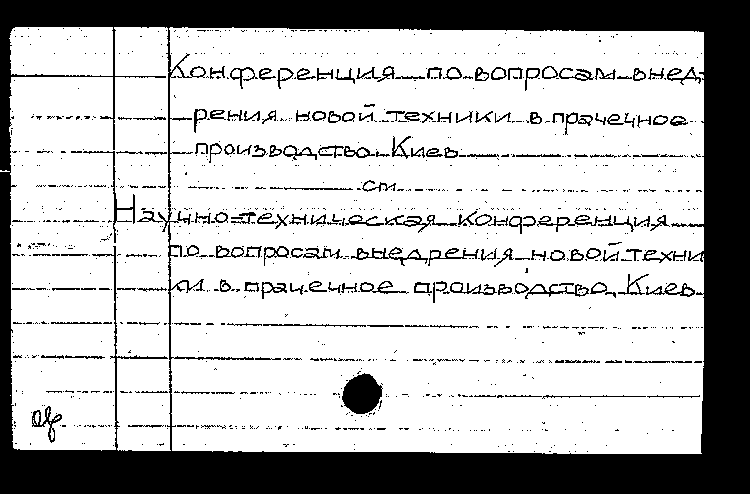 Конференция по вопросам внед-
рения новой техники в прачечное
производство. Киев
см.
Научно-техническая конференция
по вопросам внедрения новой техни
ки в прачечное производство. Киев